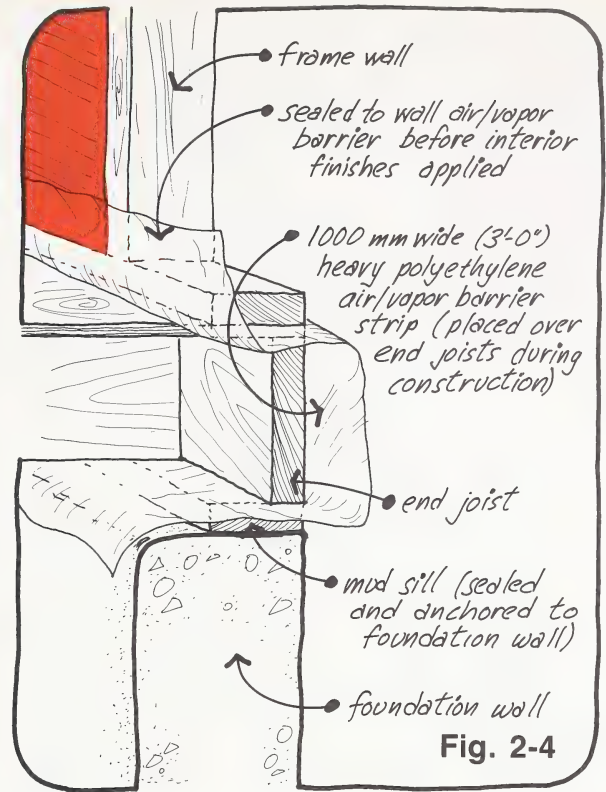 frame wall
sealed to wall air/vapor
barrier before interior
finishes applied
1000 mm wide (3'-0")
heavy polyethylene
air/vapor barrier
strip (placed over
end joists during
construction)
end joist
mud sill (sealed
and anchored to
foundation wall)
foundation wall
Fig. 2-4